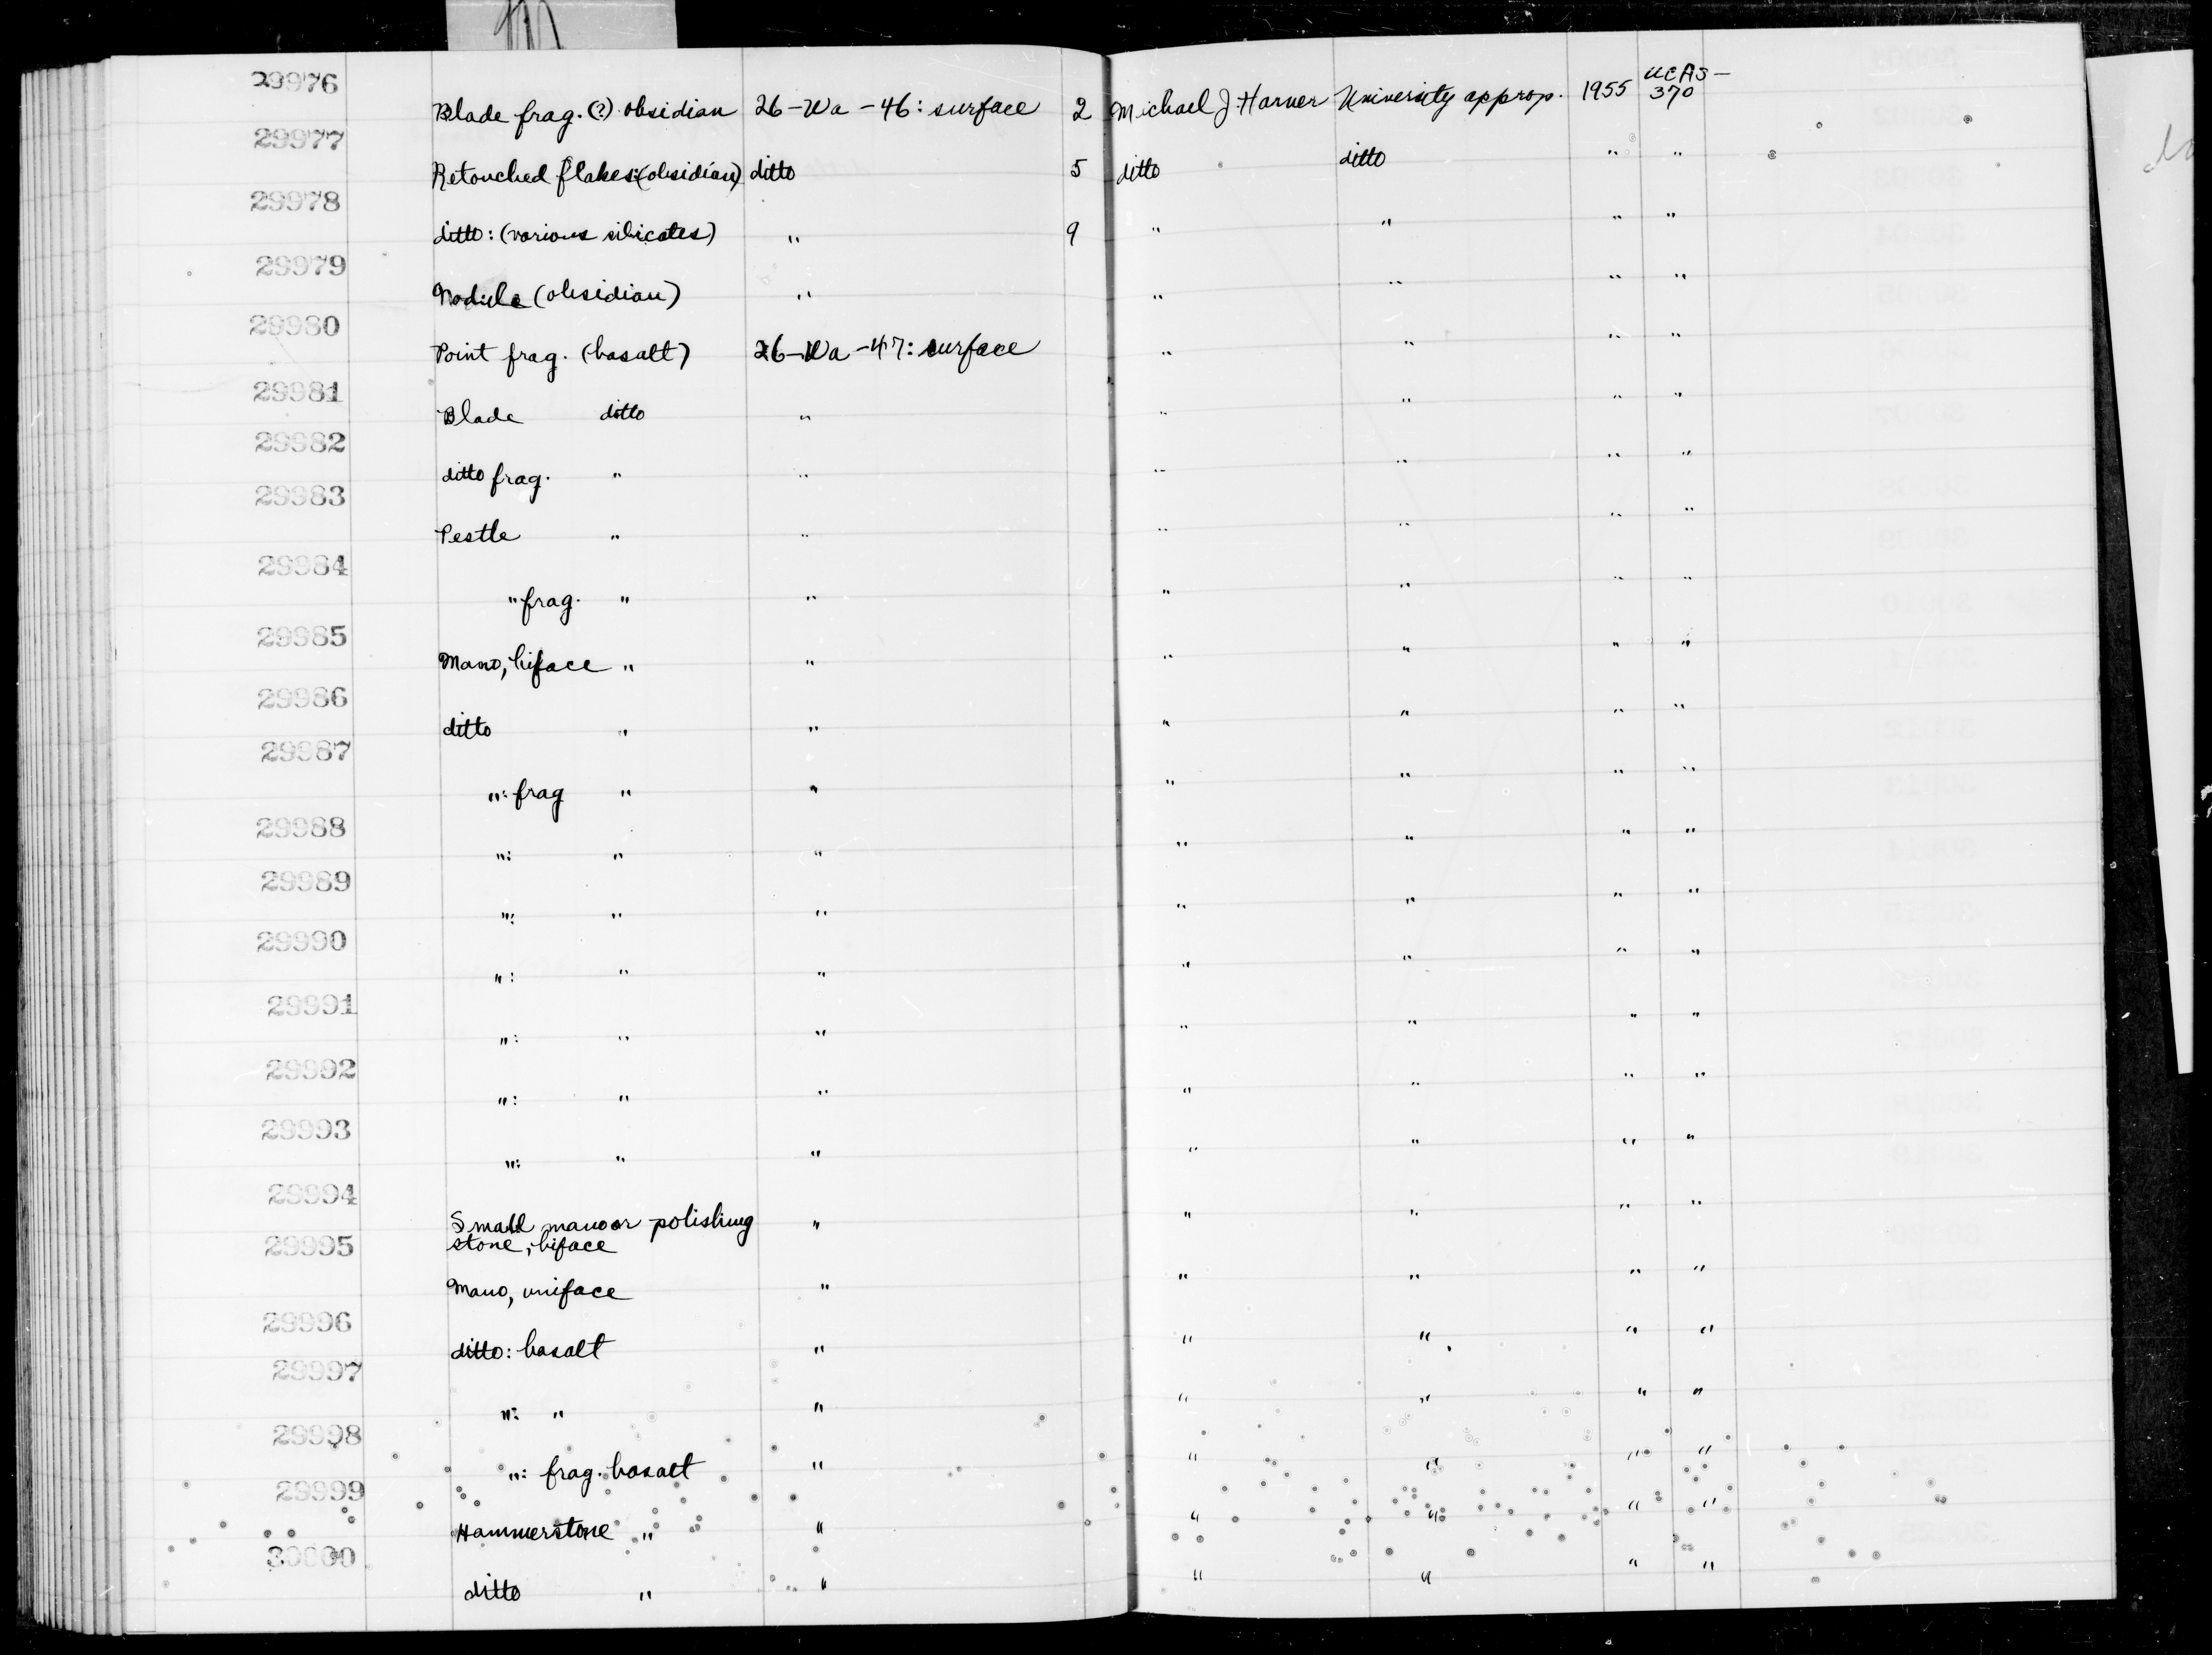 29976 Blade frag. (?) obsidian 26-Wa-46: surface 2 Michael J. Harner University approp. 1955 UCAS-370
29977 Retouched flakes: (obsidian) ditto 5 ditto ditto " "
29978 ditto: (various silicates) " 9 " " " "
29979 Nodule (obsidian) " " " " "
29980 Point frag. (basalt) 26-Wa-47: surface " " " "
29981 Blade ditto " " " " "
29982 ditto frag. " " " " " "
29983 Pestle " " " " " "
29984 " frag. " " " " " "
29985 Mano, biface " " " " " "
29986 ditto " " " " " "
29987 ": frag " " " " " "
29988 ": " " " " " "
29989 ": " " " " " "
29990 ": " " " " " "
29991 ": " " " " " "
29992 ": " " " " " "
29993 ": " " " " " "
29994 Small mano or polishing " " " " "
stone, biface
29995 Mano, uniface " " " " "
29996 ditto: basalt " " " " "
29997 ": " " " " " "
29998 ": frag. basalt " " " " "
29999 Hammerstone " " " " " "
30000 ditto " " " " " "